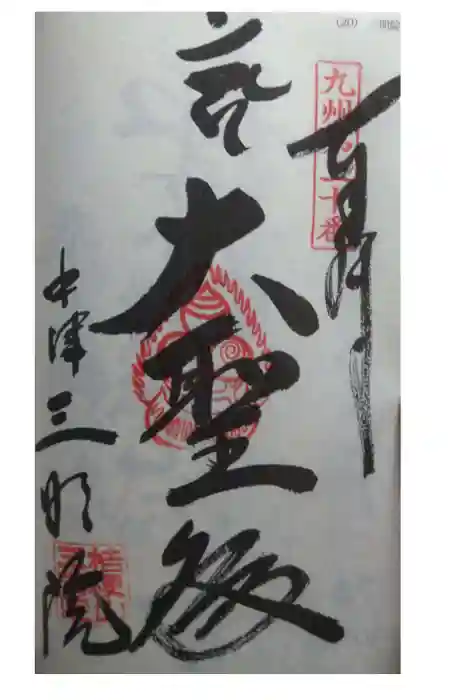 (20)
九州・二十番
奉拝
大聖殿
中津三明院